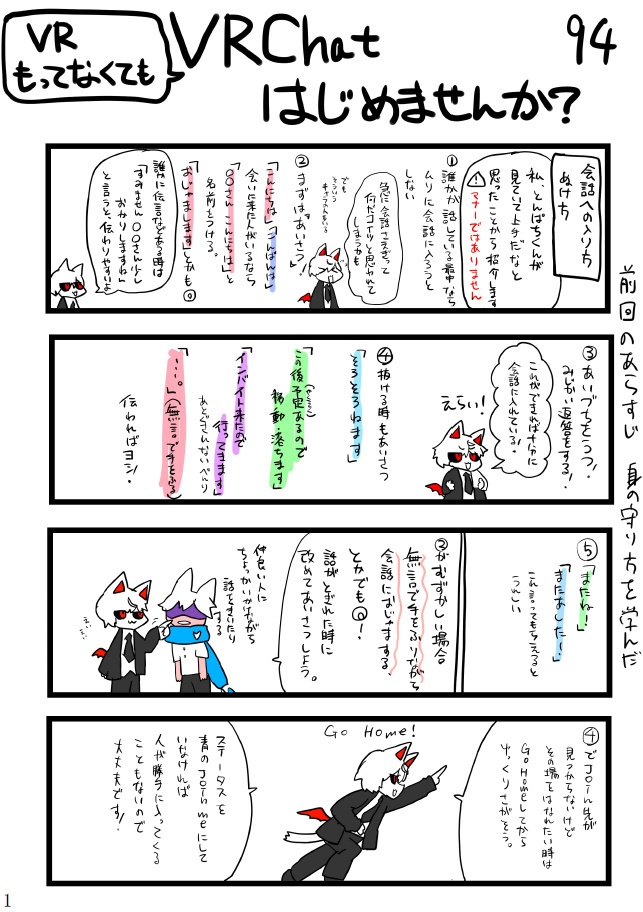 VR
もってなくても
VRChat
はじめませんか?
94
前回のあらすじ 身の守り方を学んだ
会話への入り方
ぬけ方
私、とんぱちくんが
見ていて上手だなと
思ったことから紹介します
⚠マナーではありません
①誰かが話している最中なら
ムリに会話に入ろうと
しない
急に会話さえぎって
何だコイツと思われて
しまうかも
でも
そういう
キャラの人もいる
②まずはあいさつ!
「こんにちは」「こんばんは」
会いに来た人がいるなら
「〇〇さんこんにちは」と
名前をつける。
「おじゃまします」とかも◎
誰かに伝言などある時は
「すみません〇〇さん少し
おかりしますね」
と言うと、伝わりやすいよ
③あいづちをうつ!
みじかい返答をする!
これができれば十分に
会話に入れている!
えらい!
④抜ける時もあいさつ
「そろそろねます」
「この後予定あるので
(やること)
移動・落ちます」
「インバイト来たので
行ってきます」
「・・・・。」(無言。で手をふる)
伝わればヨシ!
⑤「またね!」
「またあした〜!」
これ言ってもらえると
うれしい
②がむずかしい場合
無言で手をふりながら
会話におじゃまする。
とかでも◎!
話がとぎれた時に
改めてあいさつしよう。
仲良い人に
ちょっかいかけながら
話をきいたり
する
④でJoin先が
見つからないけど
その場をはなれたい時は
Go Homeしてから
ゆっくりさがそう。
Go Home!
ステータスを
青のJoin meにして
いなければ
人が勝手に入ってくる
こともないので
大丈夫です!
1